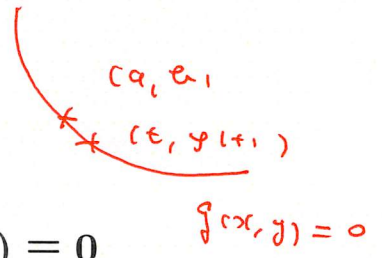 (a, b)
(t, φ(t))
g(x, y) = 0
) = 0